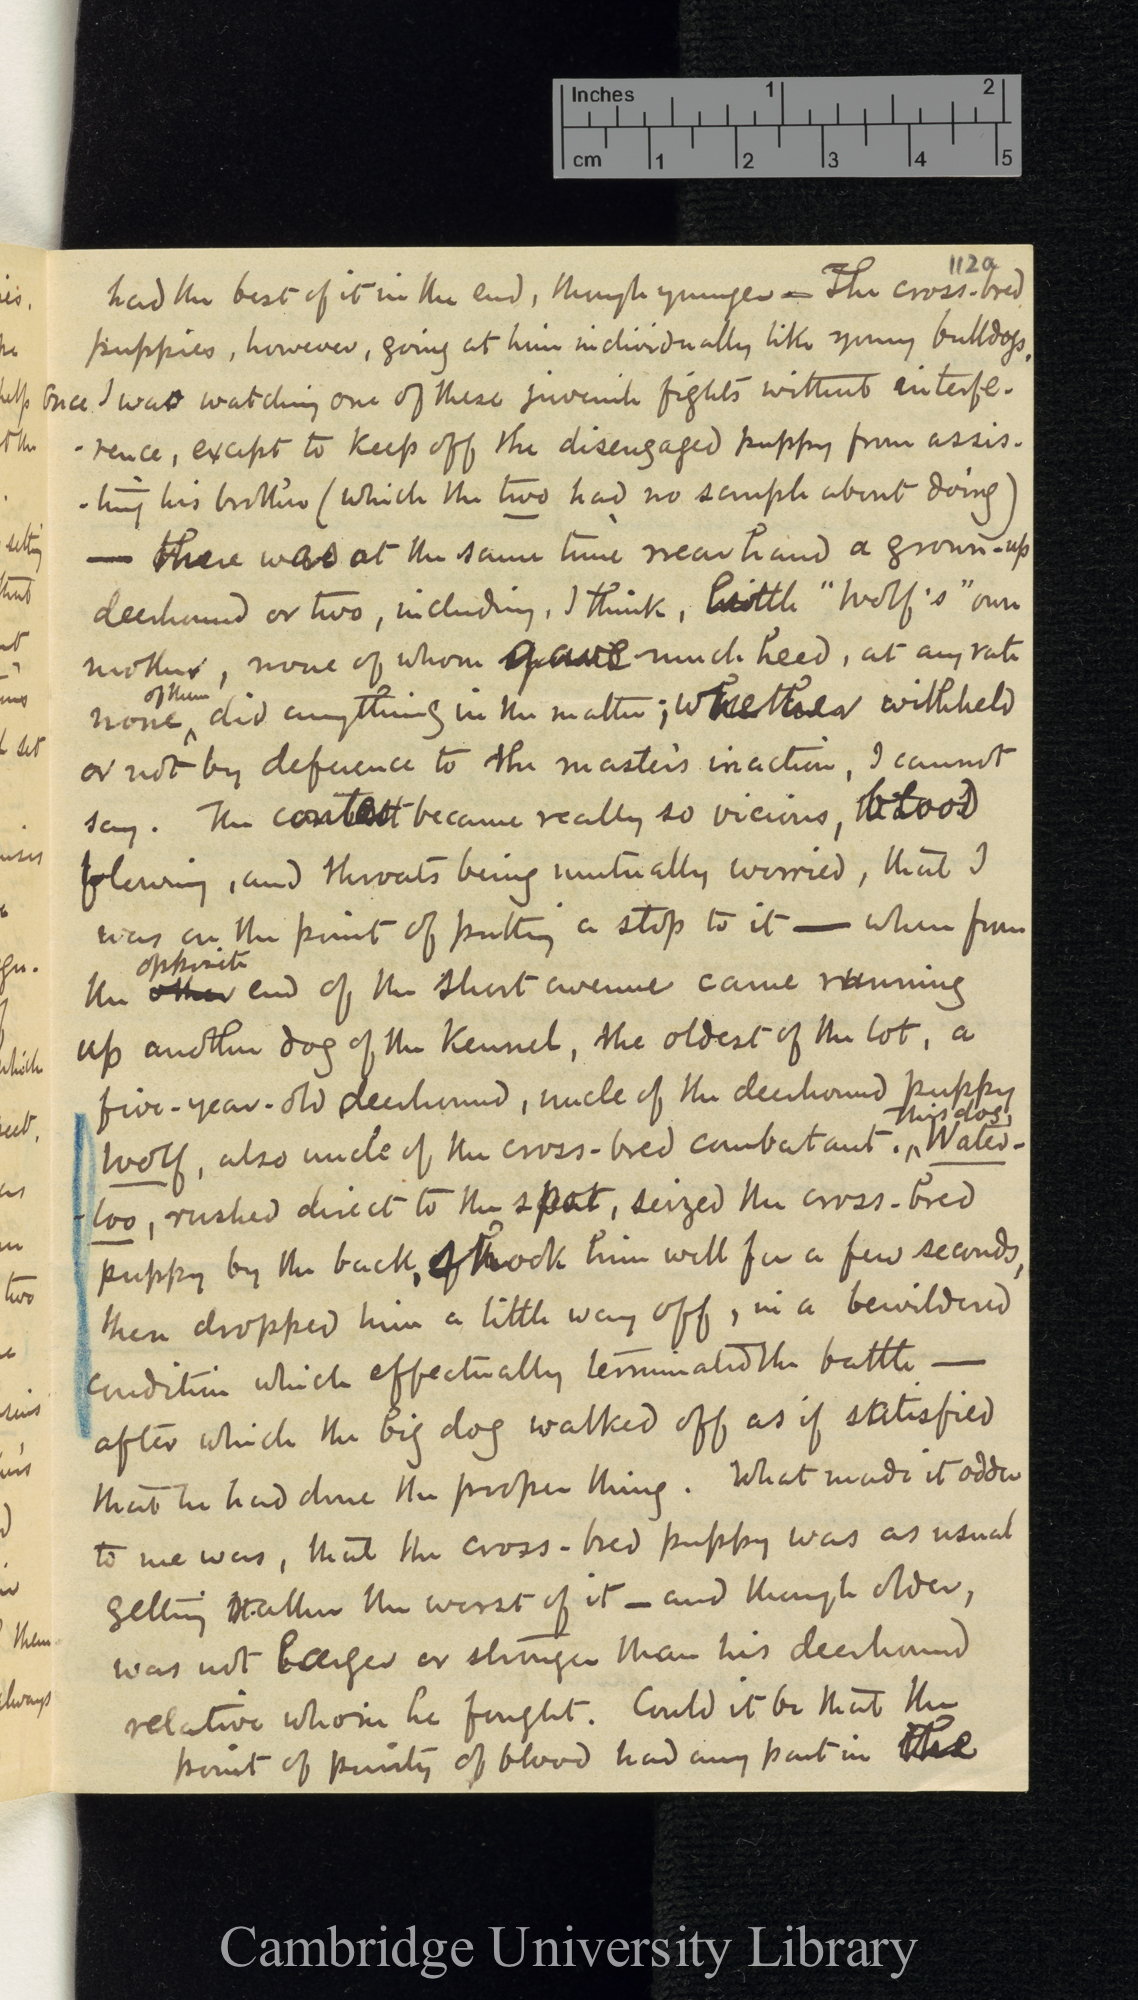 Inches 1 2
cm 1 2 3 4 5
112a
had the best of it in the end, though younger — The cross-bred
puppies, however, going at him individually like young bulldogs.
Once I was watching one of these juvenile fights without interfe-
-rence, except to keep off the disengaged puppy from assis-
-ting his brother (which the two had no scruple about doing)
— there was at the same time near hand a grown-up
deerhound or two, including, I think, little "Wolf's" own
mother, none of whom gave much heed, at any rate
of them
none did anything in the matter; whether withheld
or not by deference to the master's inaction, I cannot
say. The contest became really so vicious, blood
flowing, and throats being mutually worried, that I
was on the point of putting a stop to it — when from
opposite
the other end of the short avenue came running
up another dog of the kennel, the oldest of the lot, a
five-year-old deerhound, uncle of the deerhound puppy
This dog,
Wolf, also uncle of the cross-bred combatant. Water-
-loo, rushed direct to the spot, seized the cross-bred
puppy by the back, shook him well for a few seconds,
then dropped him a little way off, in a bewildered
condition which effectually terminated the battle —
after which the big dog walked off as if satisfied
that he had done the proper thing. What made it odder
to me was, that the cross-bred puppy was as usual
getting rather the worst of it — and though older,
was not larger or stronger than his deerhound
relative whom he fought. Could it be that the
point of purity of blood had any part in the
Cambridge University Library